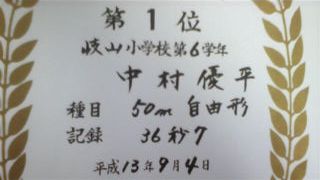 第1位
岐山小学校第6学年
中村優平
種目 50m自由形
記録 36秒7
平成13年9月4日